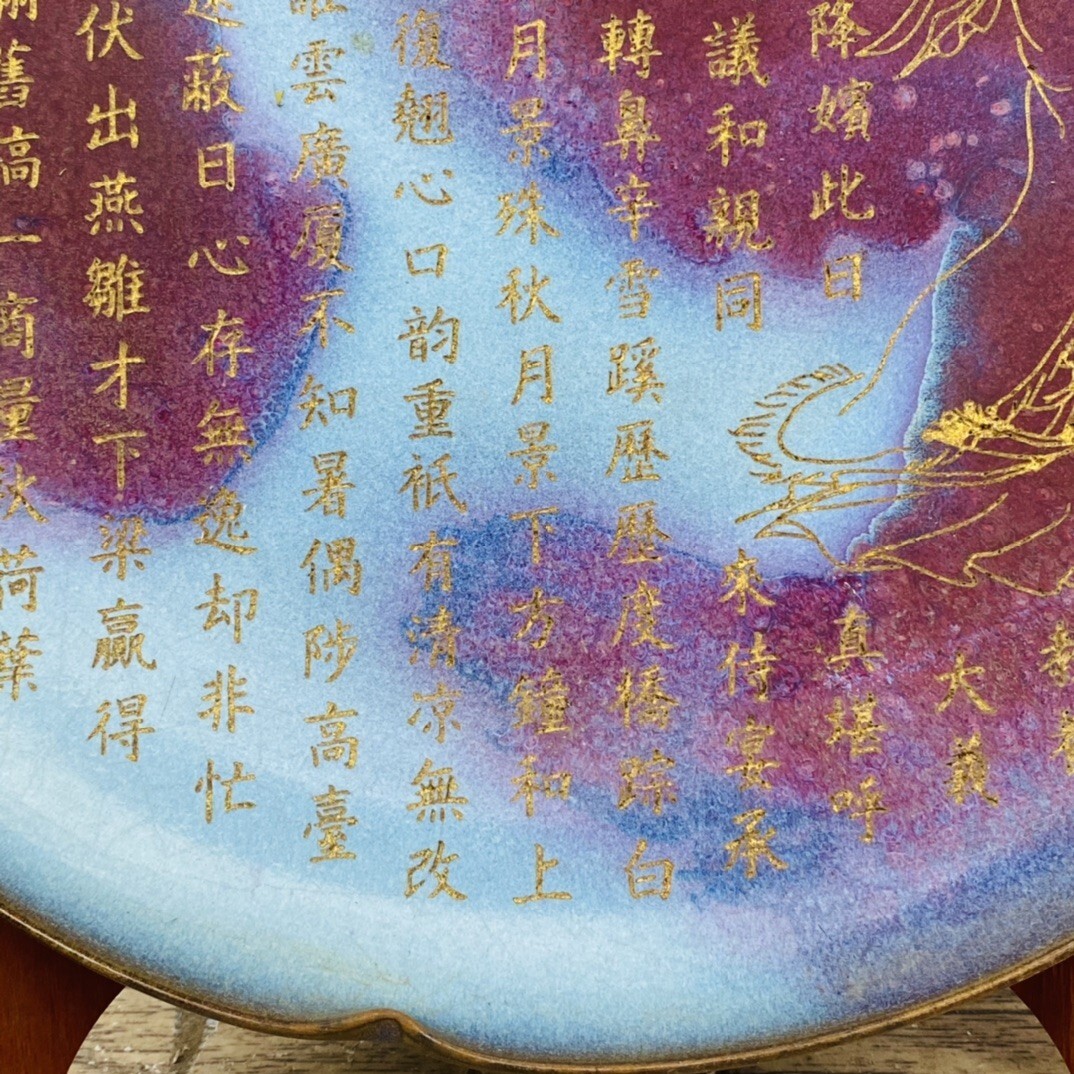 教
大義
降嬪此日
真堪呼
議和親同
來侍宴承
轉鼻辛雪蹊歷歷度橋踪白
月景殊秋月景下方鐘和上
復翹心口韵重祇有清凉無改
雲廣廈不知暑偶陟高臺
蔽日心存無逸却非忙
伏出燕雛才下梁贏得
舊高一商量秋荷葉